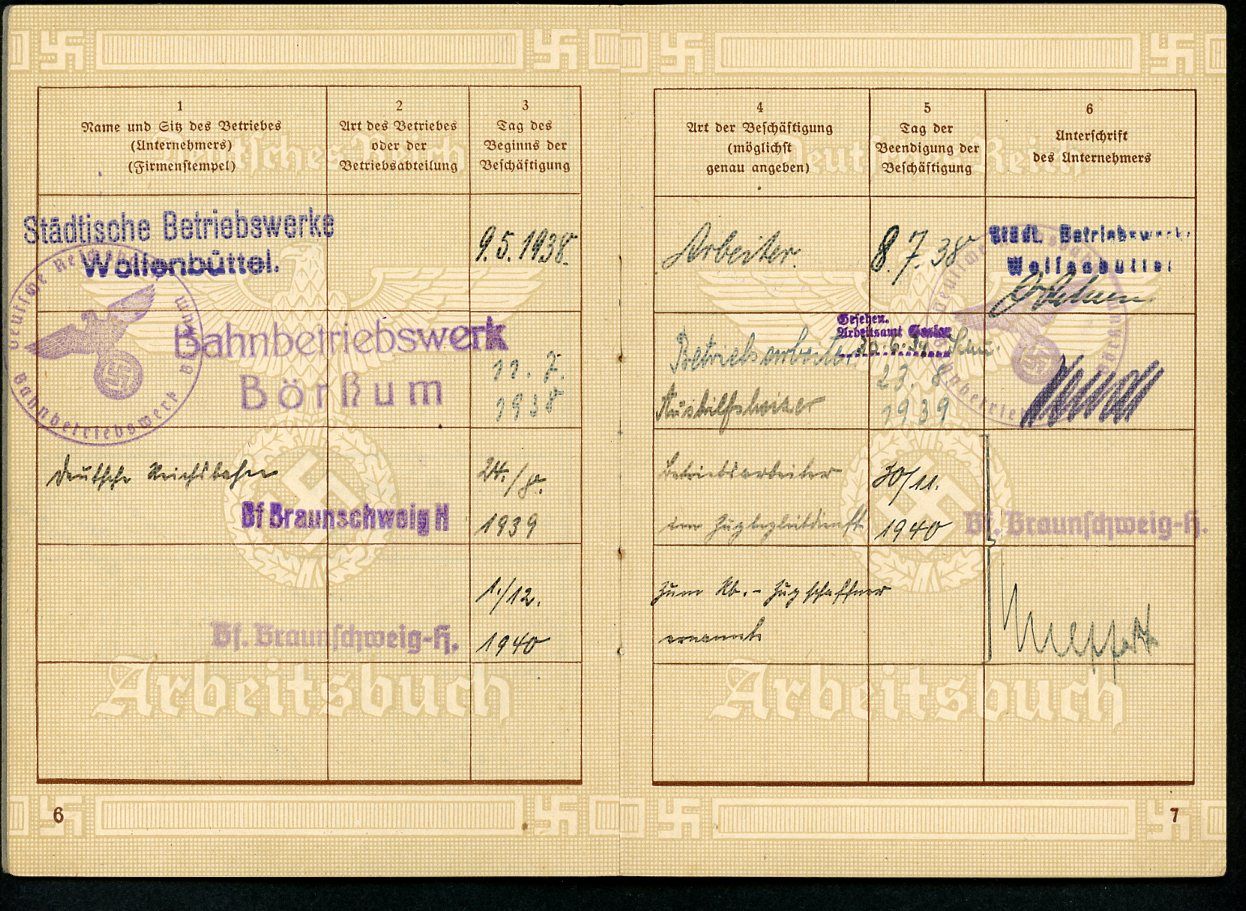 1
Name und Sitz des Betriebes
(Unternehmers)
(Firmenstempel)
2
Art des Betriebes
oder der
Betriebsabteilung
3
Tag des
Beginns der
Beschäftigung
Städtische Betriebswerke
Wolfenbüttel.
9.5.1938.
Bahnbetriebswerk
Börßum
11. 7.
1938
Deutsche Reichsbahn
Bf Braunschweig H
24./8.
1939
1./12.
1940
Bf. Braunschweig-H.
Deutsches Reich
Arbeitsbuch
6
4
Art der Beschäftigung
(möglichst
genau angeben)
5
Tag der
Beendigung der
Beschäftigung
6
Unterschrift
des Unternehmers
Arbeiter.
8.7.38
Städt. Betriebswerke
Wolfenbüttel
Gesehen.
Arbeitsamt Goslar
Betriebsarbeiter
Aushilfsheizer
23. 8.
1939
Betriebsarbeiter
im Zugbegleitdienst
30/11.
1940
Bf. Braunschweig-H.
zum Rb.-Zugschaffner
ernannt
Deutsches Reich
Arbeitsbuch
7